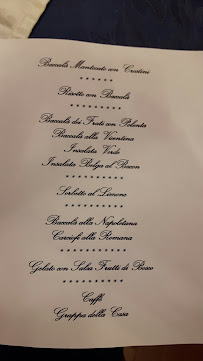 Baccalà Mantecato con Crostini
* * * * * *
Risotto con Baccalà
* * * * * * * * * *
Baccalà dei Frati con Polenta
Baccalà alla Vicentina
Insalata Verde
Insalata Belga al Bacon
* * * * * * * * * *
Sorbetto al Limone
* * * * * * * * * *
Baccalà alla Napoletana
Carciofi alla Romana
* * * * * * * * * *
Gelato con Salsa Frutti di Bosco
* * * * * * * * * *
Caffè
Grappa della Casa